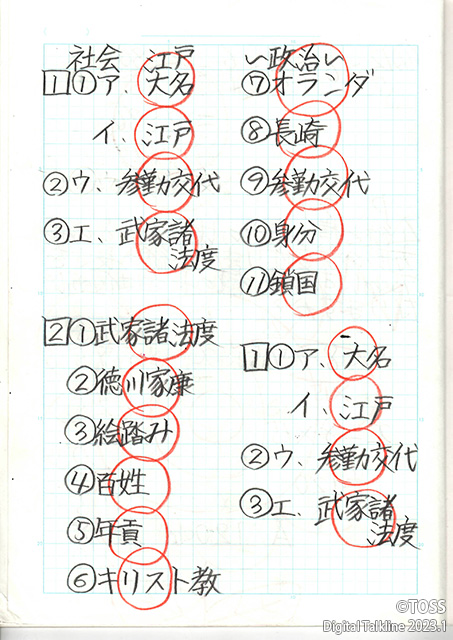 社会 江戸
1 ①ア、大名
イ、江戸
②ウ、参勤交代
③エ、武家諸
法度
2 ①武家諸法度
②徳川家康
③絵踏み
④百姓
⑤年貢
⑥キリスト教
〜政治〜
⑦オランダ
⑧長崎
⑨参勤交代
⑩身分
⑪鎖国
1 ①ア、大名
イ、江戸
②ウ、参勤交代
③エ、武家諸
法度
©TOSS
Digital Talkline 2023.1